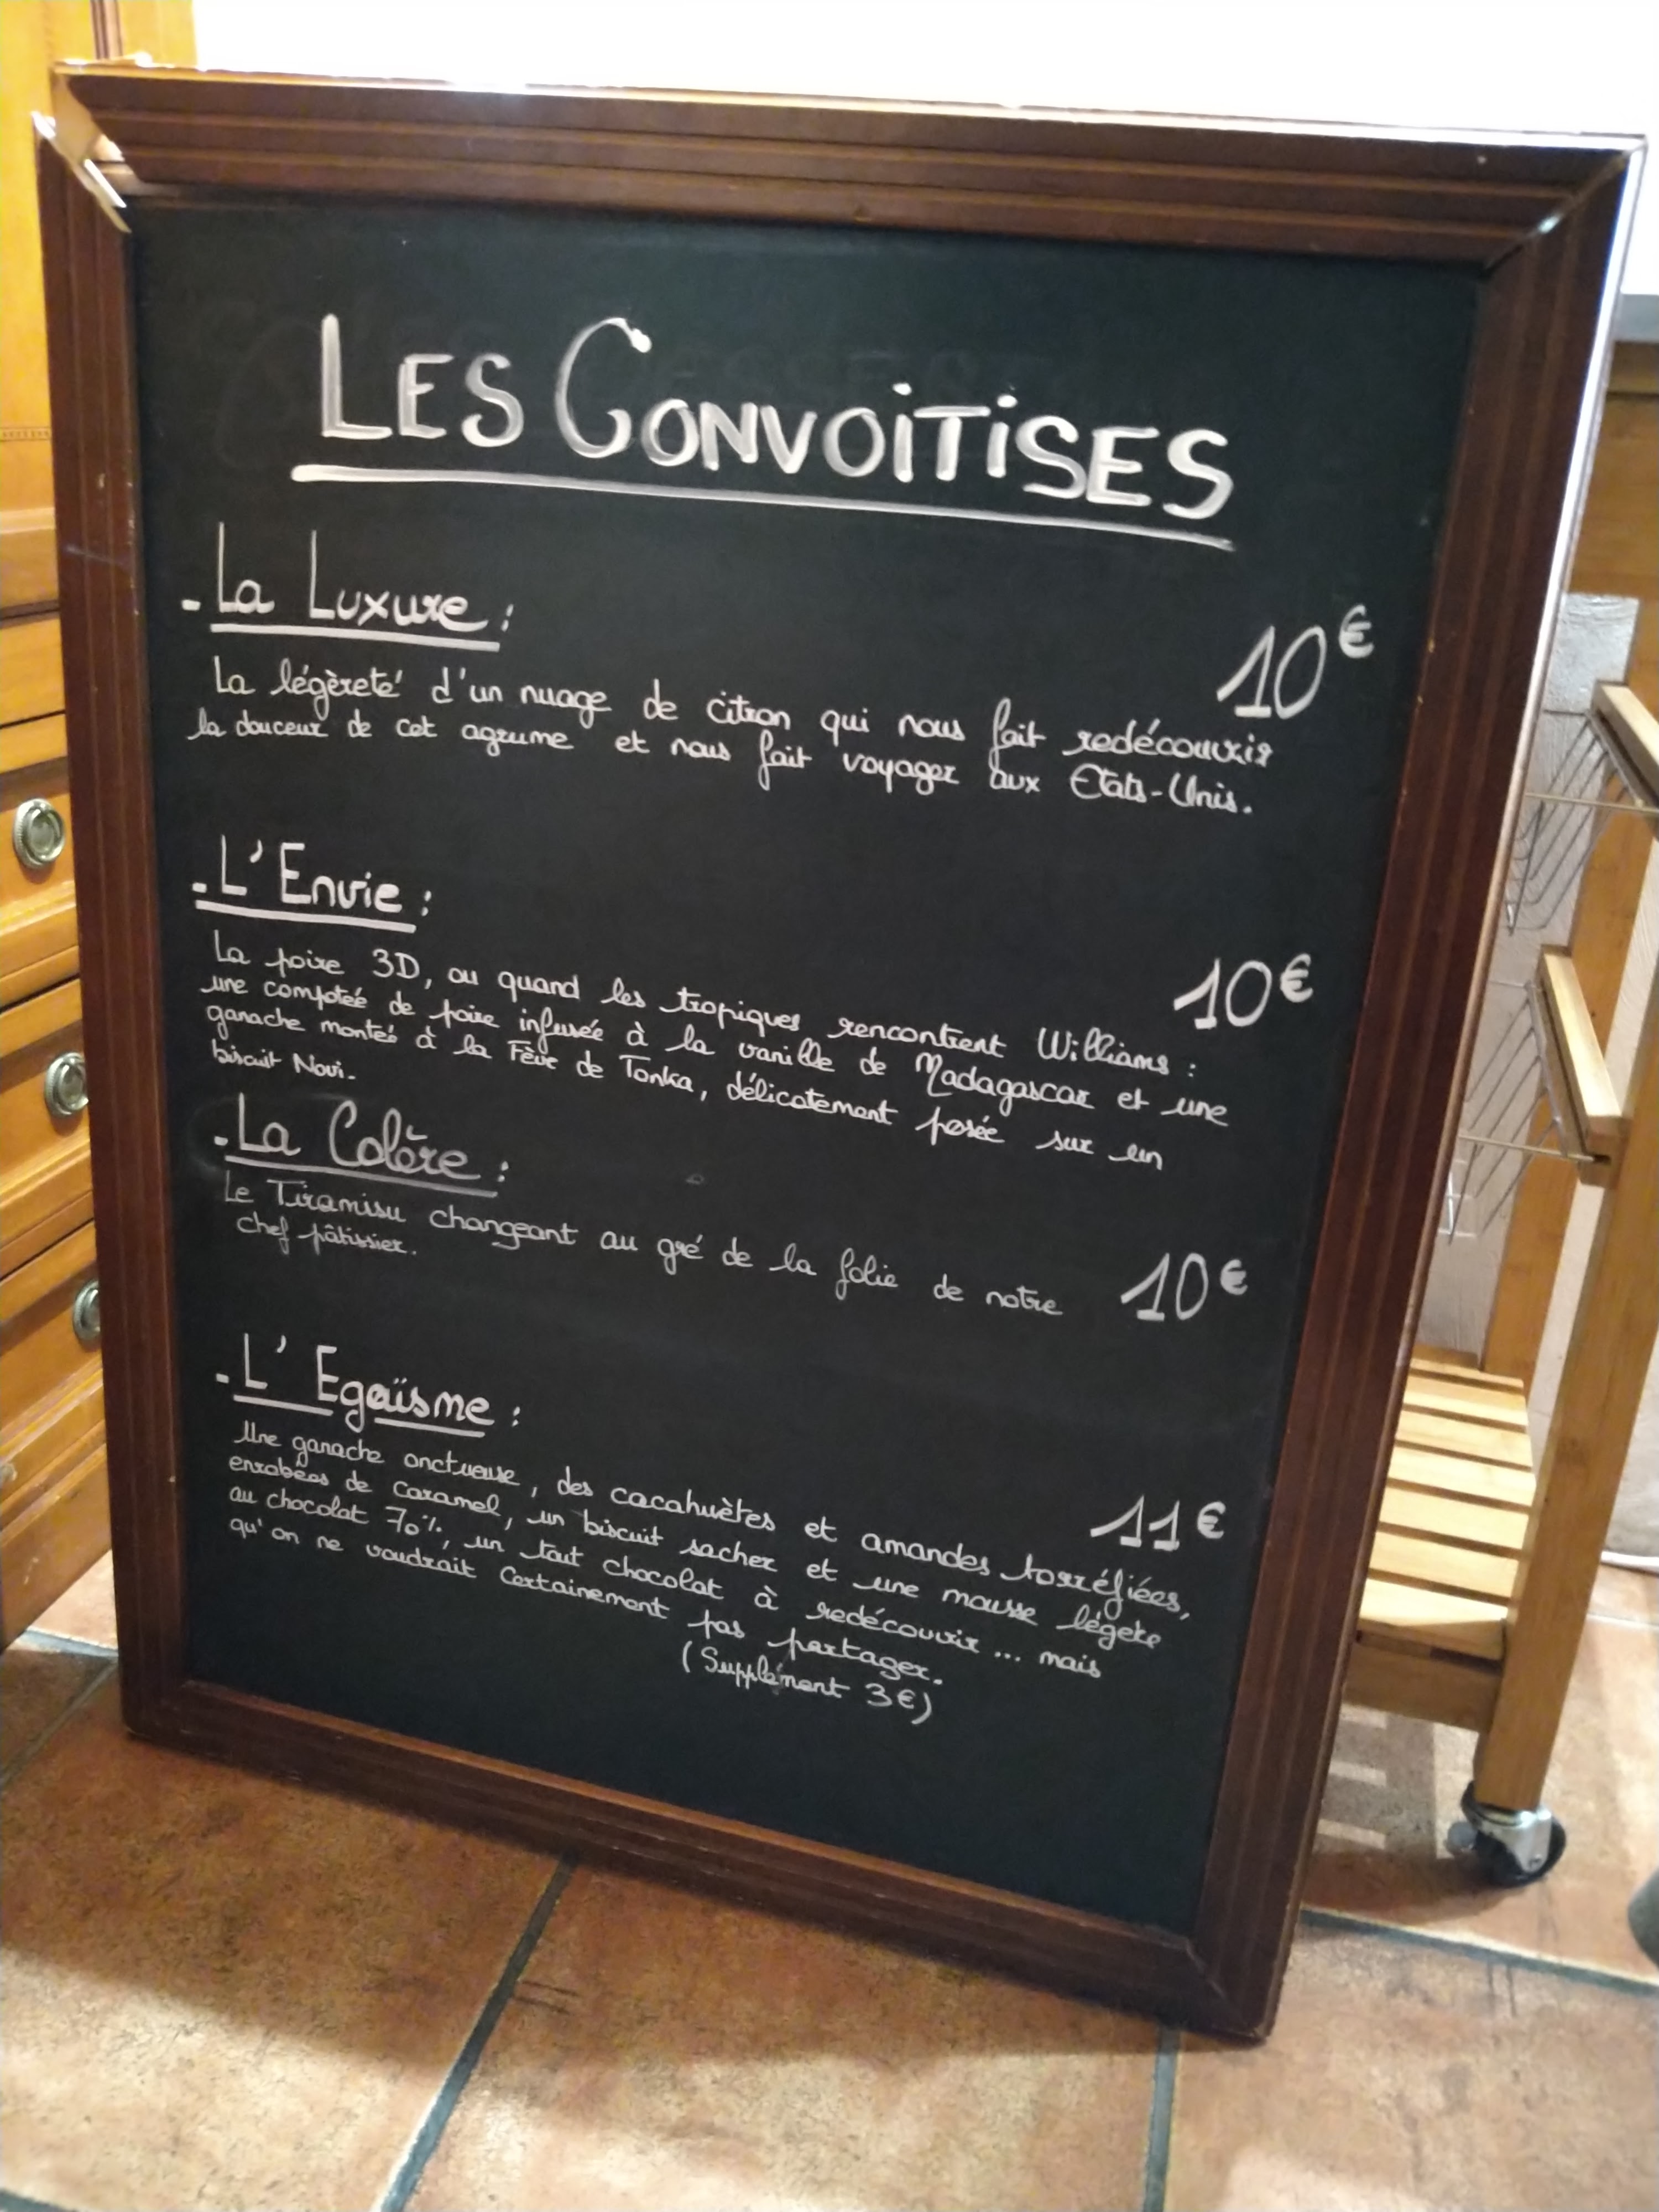 LES CONVOITISES
- La Luxure : 10€
La légèreté d'un nuage de citron qui nous fait redécouvrir
la douceur de cet agrume et nous fait voyager aux Etats-Unis.
- L'Envie : 10€
La poire 3D, ou quand les tropiques rencontrent Williams :
une compotée de poire infusée à la vanille de Madagascar et une
ganache montée à la Fève de Tonka, délicatement posée sur un
biscuit Novi.
- La Colère :
Le Tiramisu changeant au gré de la folie de notre 10€
chef pâtissier.
- L' Egoïsme : 11€
Une ganache onctueuse, des cacahuètes et amandes torréfiées,
enrobées de caramel, un biscuit sacher et une mousse légère
au chocolat 70%, un tout chocolat à redécouvrir ... mais
qu'on ne voudrait Certainement pas partager.
(Supplément 3€)